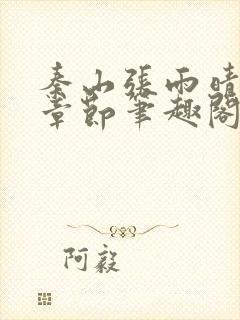 秦山張雨晴
章節筆趣閣
阿毅